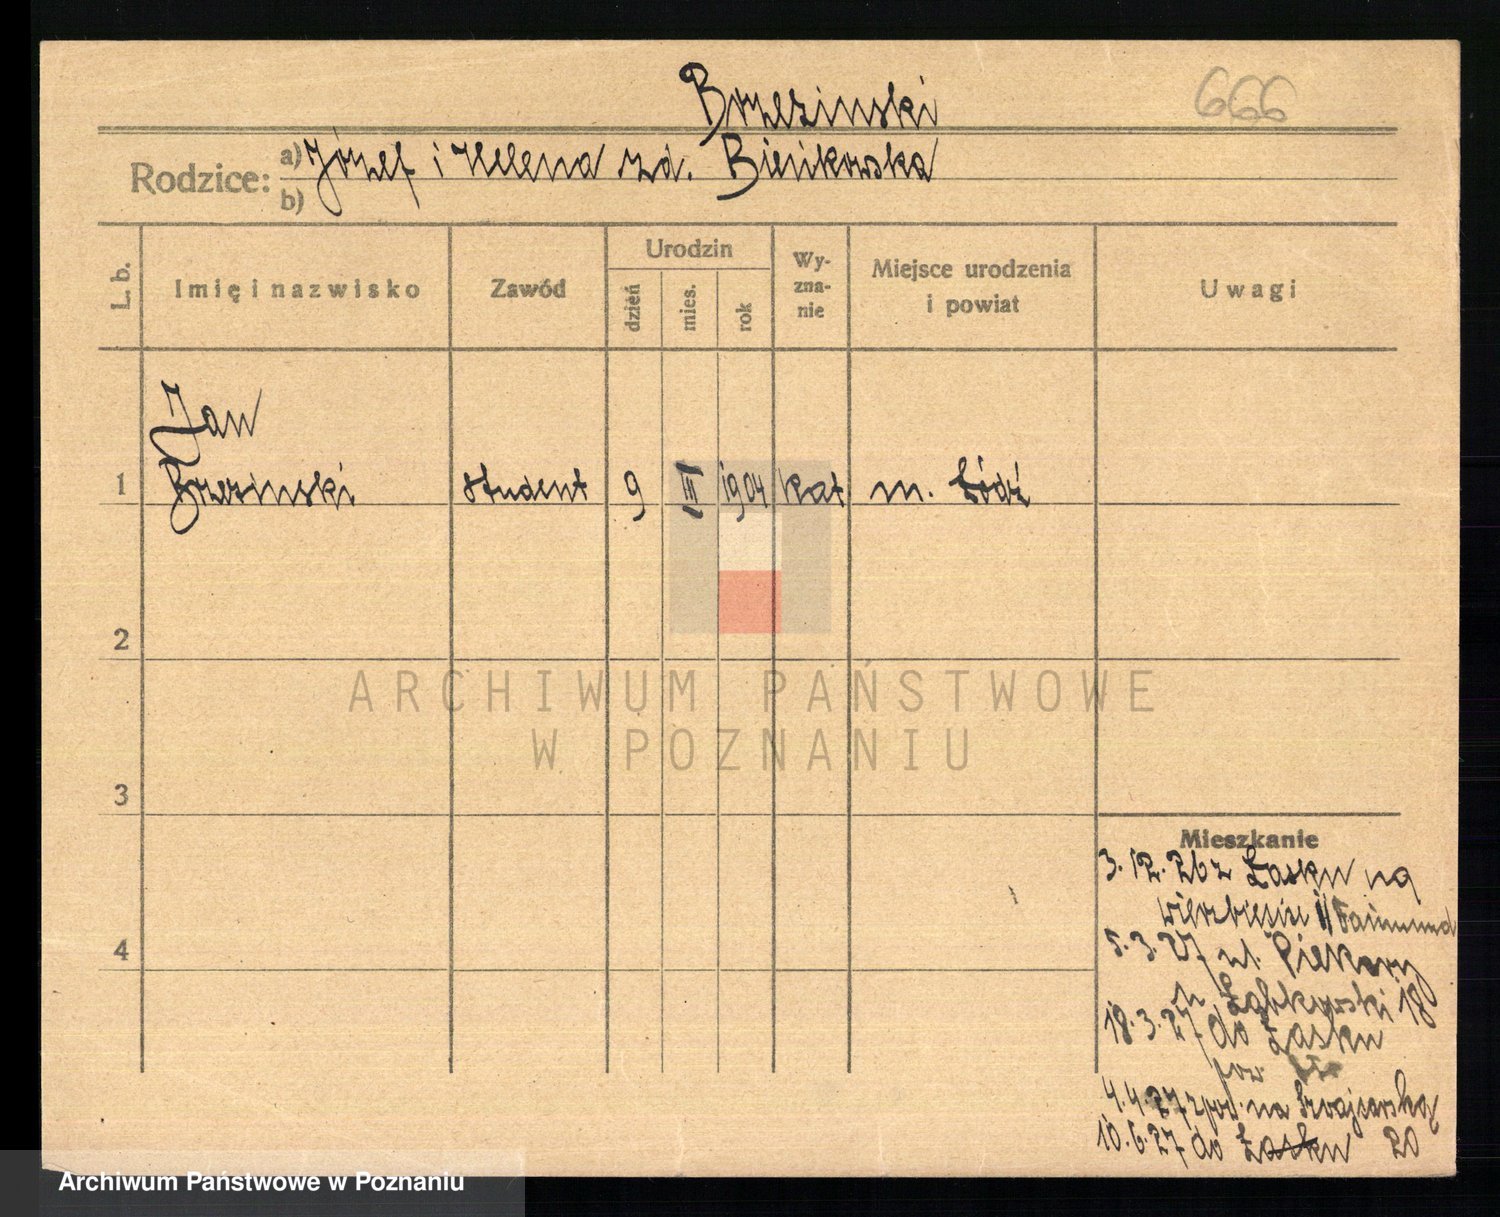 Brzezinski
666
Rodzice: a) Józef i Helena zd. Bieńkowska
b)
L. b.
Imię i nazwisko
Zawód
Urodzin
dzień
mies.
rok
Wy-
zna-
nie
Miejsce urodzenia
i powiat
Uwagi
Jan
1 Brzezinski student 9 III 1904 kat m. Łódź
2
ARCHIWUM PAŃSTWOWE
W POZNANIU
3
Mieszkanie
3.12.26 z Łasku na
4
5.3.27 ul. Piekary
18
18.3.27 do Łasku
4.4.27 na Szwajcarską
10.6.27 do Łasku 20
Archiwum Państwowe w Poznaniu